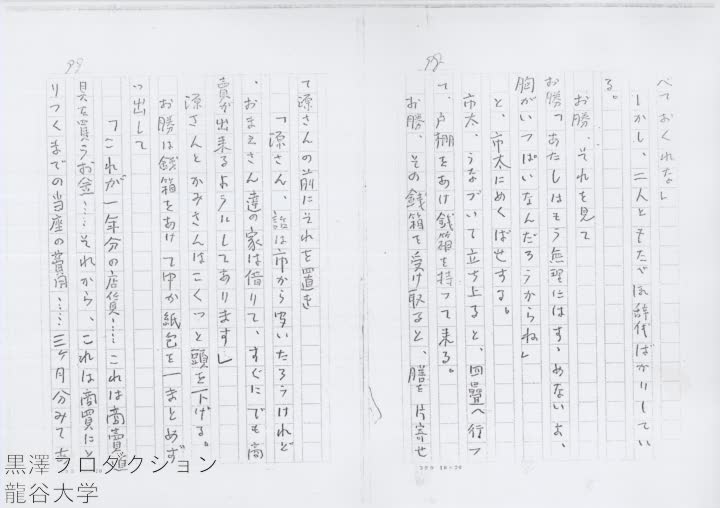 92
べておくれな」
しかし、二人ともたゞ辞儀ばかりしてい
る。
お勝、それを見て
お勝「あたしはもう無理にはすゝめないよ、
胸がいつぱいなんだろうからね」
と、市太にめくばせする。
市太、うなづいて立ち上ると、四畳へ行つ
て、戸棚をあけ銭箱を持つて来る。
お勝、その銭箱を受け取ると、膳を片寄せ
93
て源さんの前にそれを置き
「源さん、話は市から聞いたろうけれど
、おまえさん達の家は借りて、すぐにでも商
賣が出来るようにしてあります」
源さんとかみさんはこくつと頭を下げる。
お勝は銭箱をあけて中から紙包を一まとめず
つ出して
「これが一年分の店賃……これは商賣道
具を買うお金……それから、これは商買にと
りつくまでの当座の費用……三ヶ月分みてあ
黒澤プロダクション
龍谷大学